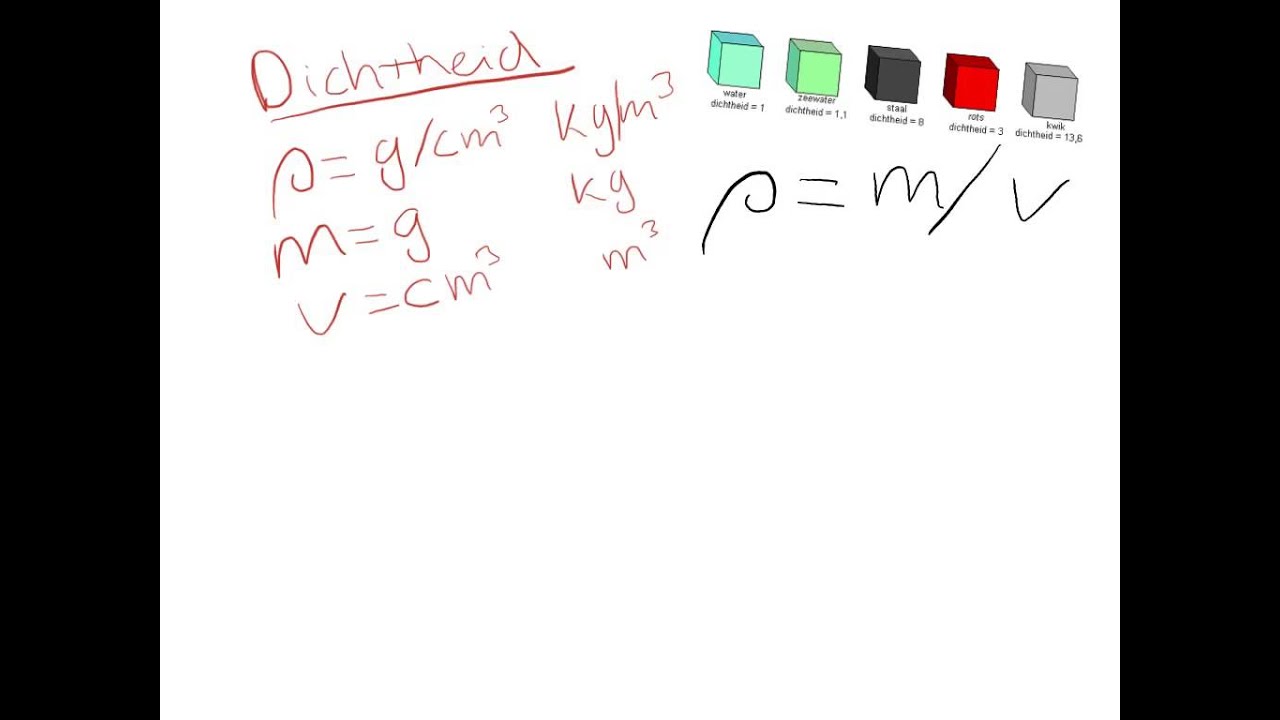 Dichtheid
ρ = g/cm³ kg/m³
m = g kg
v = cm³ m³
water
dichtheid = 1
zeewater
dichtheid = 1,1
staal
dichtheid = 8
rots
dichtheid = 3
kwik
dichtheid = 13,6
ρ = m/v